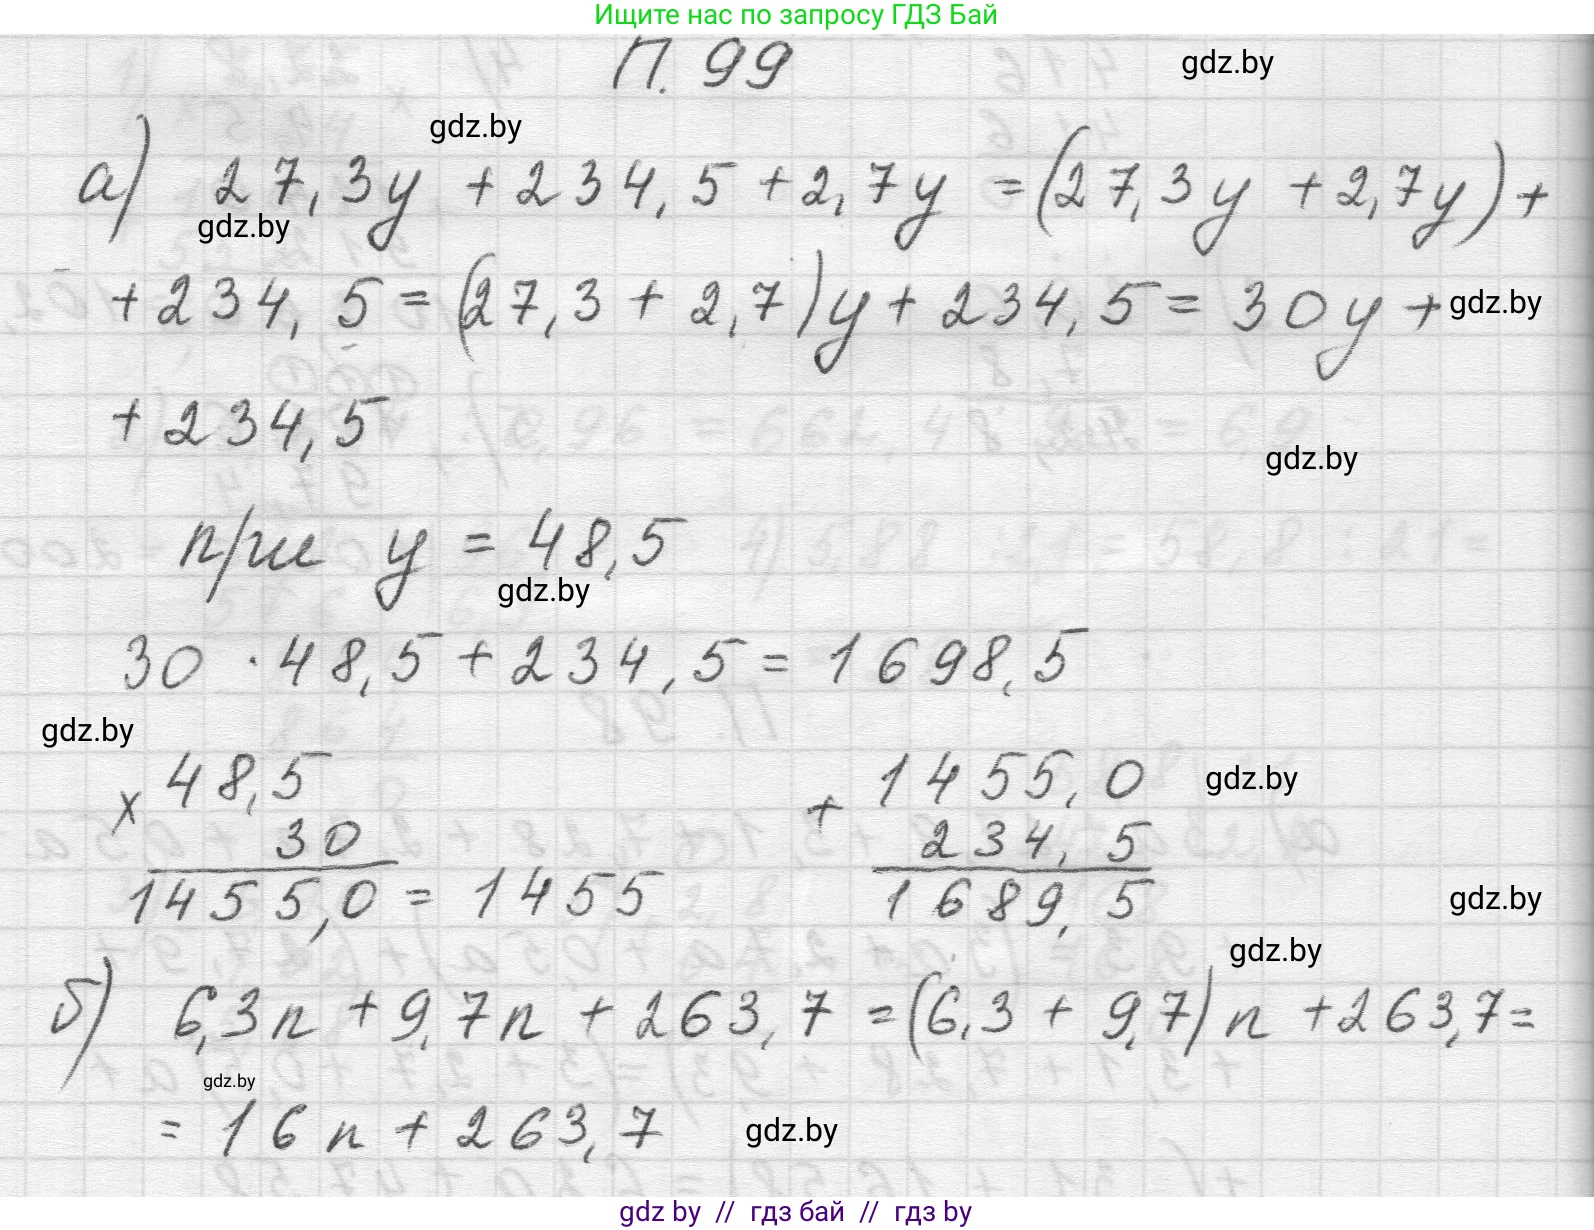 Ищите нас по запросу ГДЗ Бай
П. 99
gdz.by
gdz.by
а) 27,3y + 234,5 + 2,7y = (27,3y + 2,7y) +
gdz.by
+ 234,5 = (27,3 + 2,7)y + 234,5 = 30y +
gdz.by
+ 234,5
gdz.by
при y = 48,5
gdz.by
30 · 48,5 + 234,5 = 1698,5
gdz.by
× 48,5
30
1455,0 = 1455
+ 1455,0
234,5
1689,5
gdz.by
gdz.by
gdz.by
б) 6,3n + 9,7n + 263,7 = (6,3 + 9,7)n + 263,7 =
gdz.by
= 16n + 263,7
gdz.by
gdz by // гдз бай // гдз by